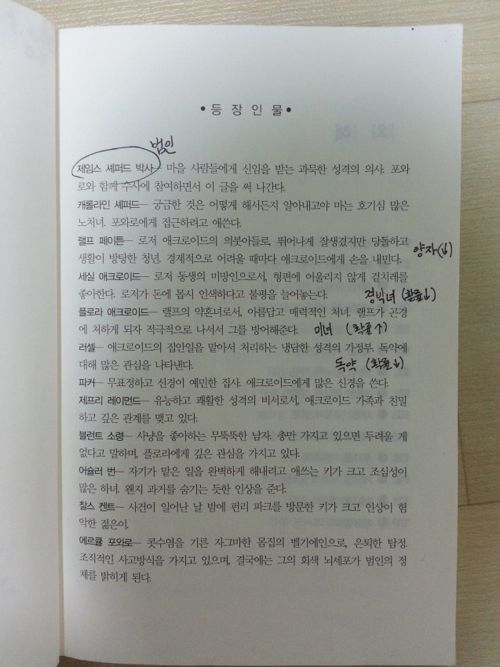 • 등 장 인 물 •
범인
제임스 셰퍼드 박사— 마을 사람들에게 신임을 받는 과묵한 성격의 의사. 포와
로와 함께 수사에 참여하면서 이 글을 써 나간다.
캐롤라인 셰퍼드— 궁금한 것은 어떻게 해서든지 알아내고야 마는 호기심 많은
노처녀. 포와로에게 접근하려고 애쓴다.
랠프 페이튼— 로저 애크로이드의 의붓아들로, 뛰어나게 잘생겼지만 당돌하고
생활이 방탕한 청년. 경제적으로 어려울 때마다 애크로이드에게 손을 내민다.
양자(↓)
세실 애크로이드— 로저 동생의 미망인으로서, 형편에 어울리지 않게 겉치레를
좋아한다. 로저가 돈에 몹시 인색하다고 불평을 늘어놓는다.
경박녀 (확률↓)
플로라 애크로이드— 랠프의 약혼녀로서, 아름답고 매력적인 처녀. 랠프가 곤경
에 처하게 되자 적극적으로 나서서 그를 방어해준다. 미녀 (확률↑)
러셀— 애크로이드의 집안일을 맡아서 처리하는 냉담한 성격의 가정부. 독약에
대해 많은 관심을 나타낸다. 독약 (확률↓)
파커— 무표정하고 신경이 예민한 집사. 애크로이드에게 많은 신경을 쓴다.
제프리 레이먼드— 유능하고 쾌활한 성격의 비서로서, 애크로이드 가족과 친밀
하고 깊은 관계를 맺고 있다.
블런트 소령— 사냥을 좋아하는 무뚝뚝한 남자. 총만 가지고 있으면 두려울 게
없다고 말하며, 플로라에게 깊은 관심을 가지고 있다.
어슐러 번— 자기가 맡은 일을 완벽하게 해내려고 애쓰는 키가 크고 조심성이
많은 하녀. 왠지 과거를 숨기는 듯한 인상을 준다.
찰스 켄트— 사건이 일어난 날 밤에 펀리 파크를 방문한 키가 크고 인상이 험
악한 젊은이.
에르큘 포와로— 콧수염을 기른 자그마한 몸집의 벨기에인으로, 은퇴한 탐정.
조직적인 사고방식을 가지고 있으며, 결국에는 그의 회색 뇌세포가 범인의 정
체를 밝히게 된다.